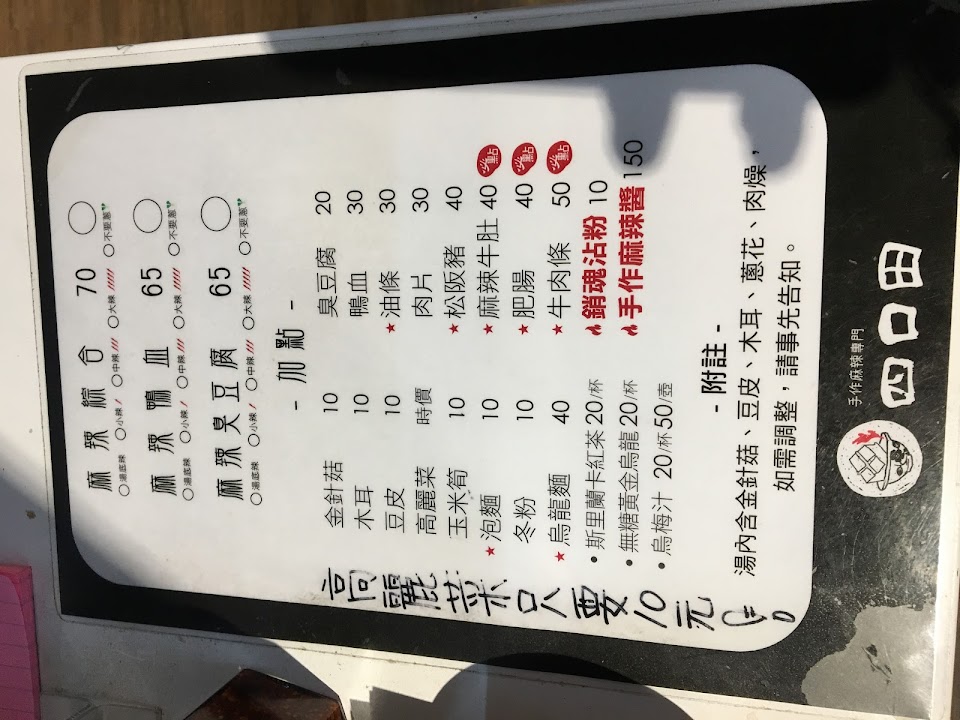 麻辣綜合 70
○湯底辣 ○小辣 ○中辣 ○大辣 ○不要蔥
麻辣鴨血 65
○湯底辣 ○小辣 ○中辣 ○大辣 ○不要蔥
麻辣臭豆腐 65
○湯底辣 ○小辣 ○中辣 ○大辣 ○不要蔥
- 加點 -
金針菇 10 臭豆腐 20
木耳 10 鴨血 30
豆皮 10 ★油條 30
高麗菜 時價 肉片 30
玉米筍 10 ★松阪豬 40
★泡麵 10 ★麻辣牛肚 40 必點
冬粉 10 ★肥腸 40 必點
★烏龍麵 40 ★牛肉條 50 必點
•斯里蘭卡紅茶 20/杯 銷魂沾粉 10
•無糖黃金烏龍 20/杯 手作麻辣醬 150
•烏梅汁 20/杯 50/壺
- 附註 -
湯內含金針菇、豆皮、木耳、蔥花、肉燥，
如需調整，請事先告知。
高麗菜只要10元
手作麻辣專門
四口田